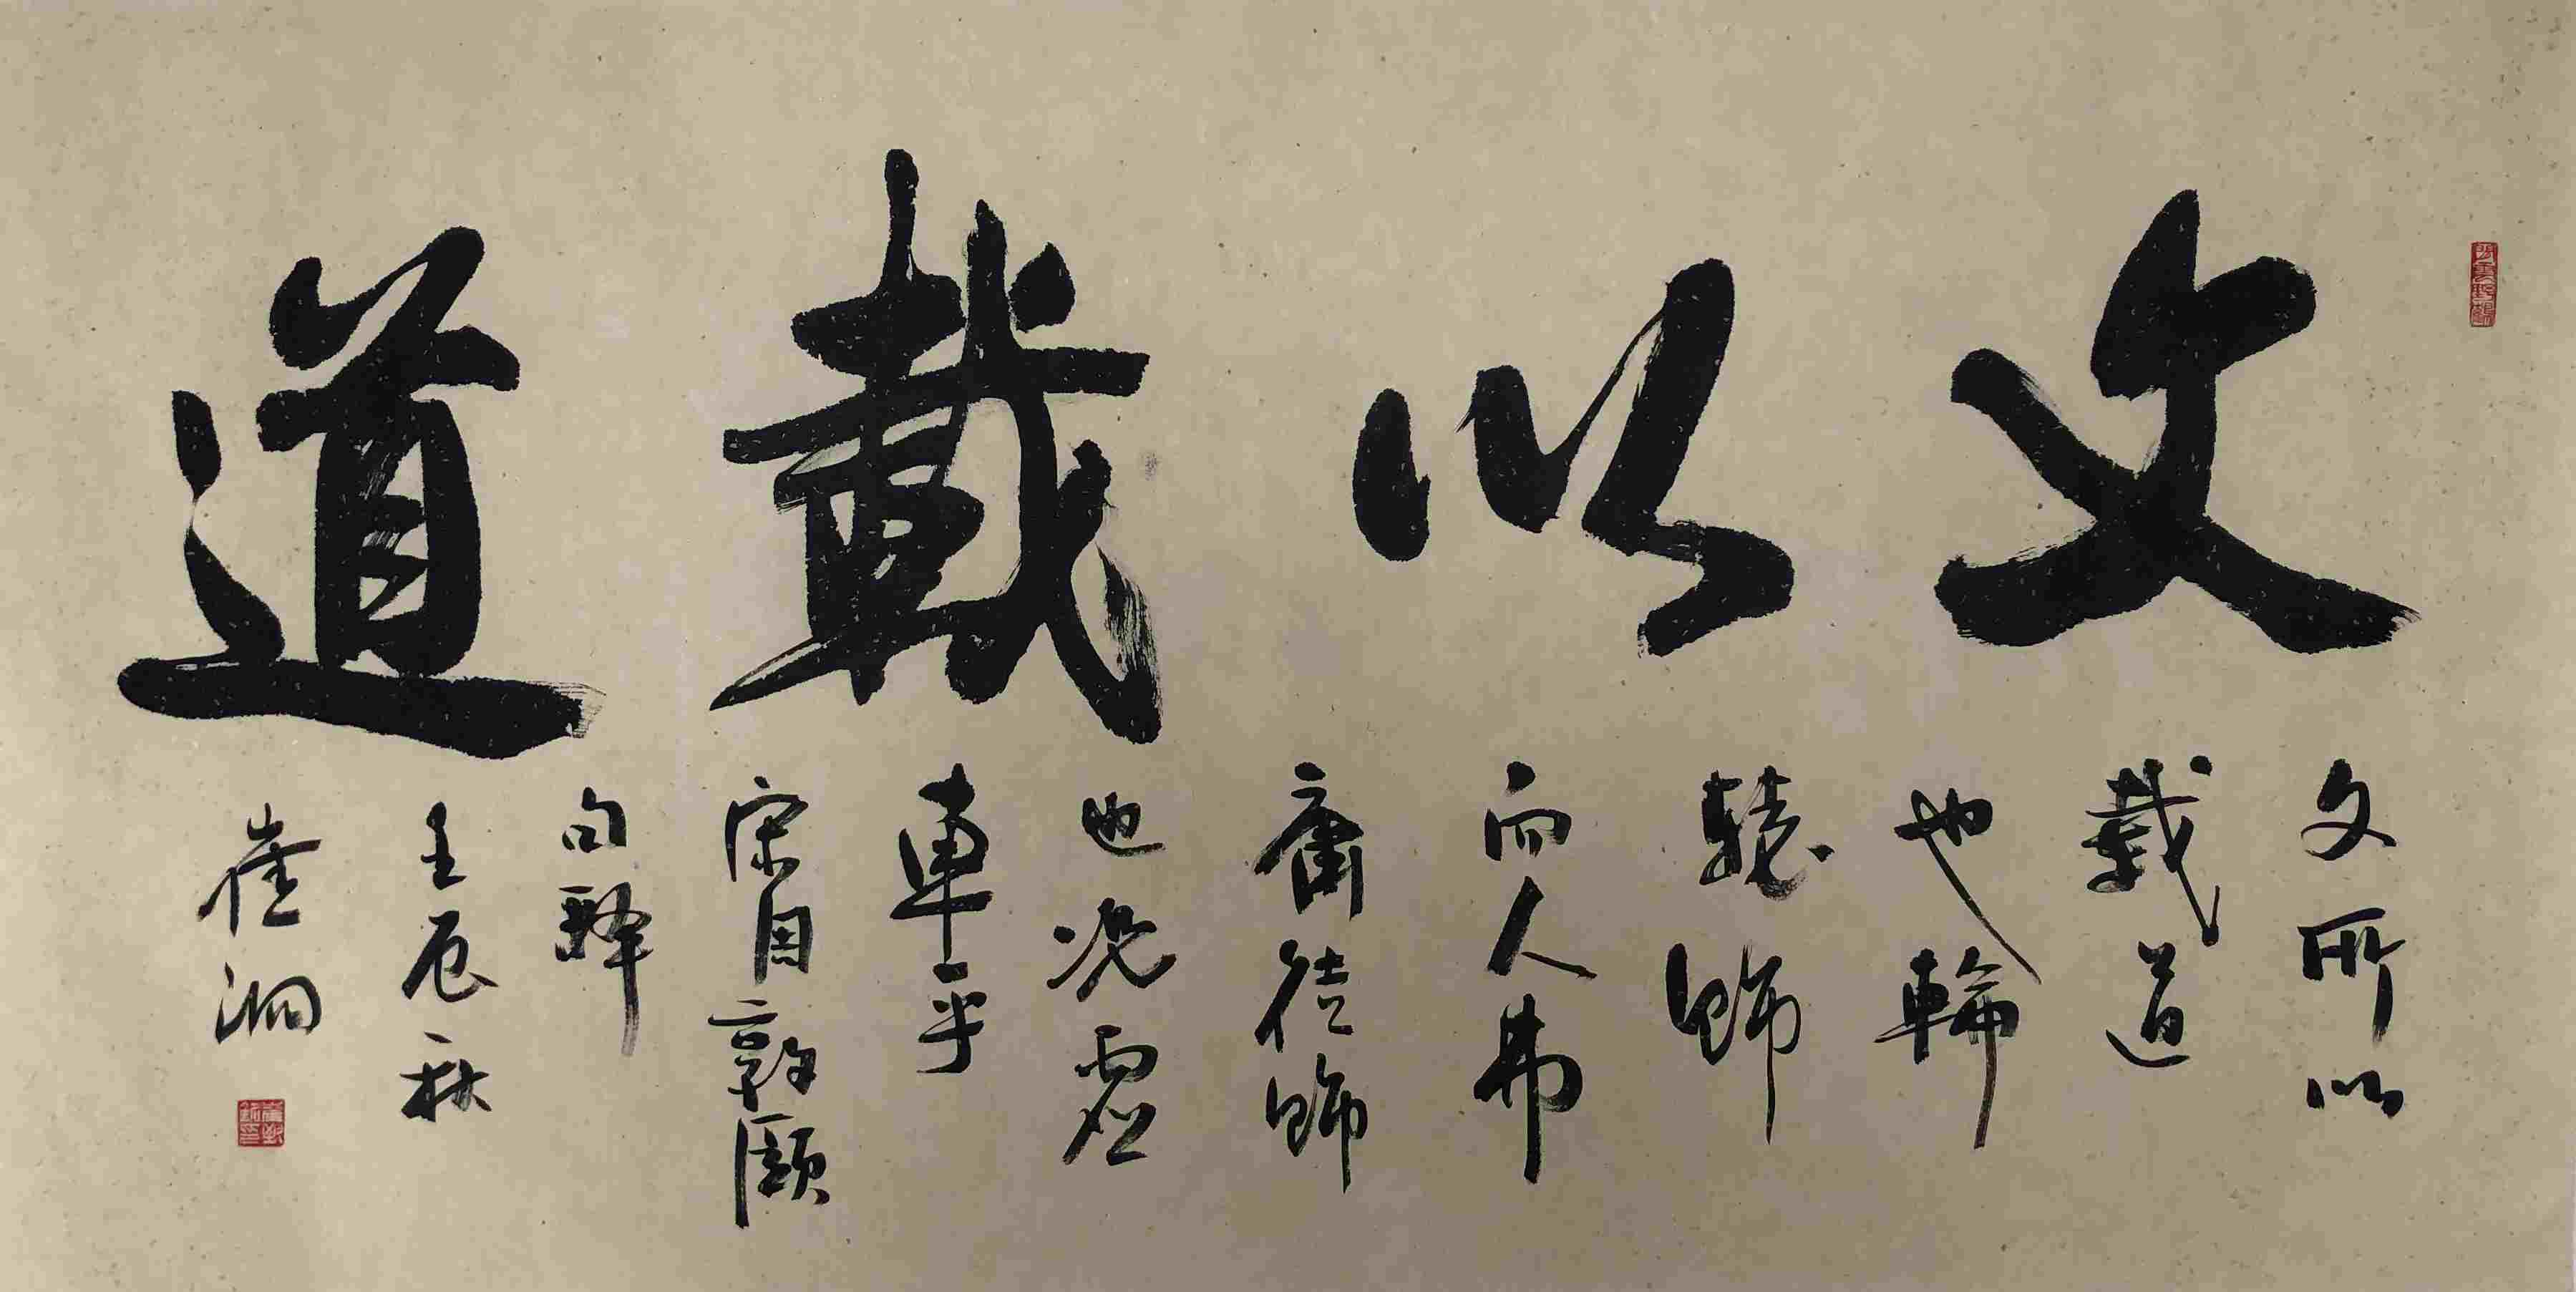 文以載道
文所以
載道
也輪
轅飾
而人弗
庸徒飾
也況虛
車乎
宋周敦頤
句釋
壬辰秋
崔泂
閑雲野鶴